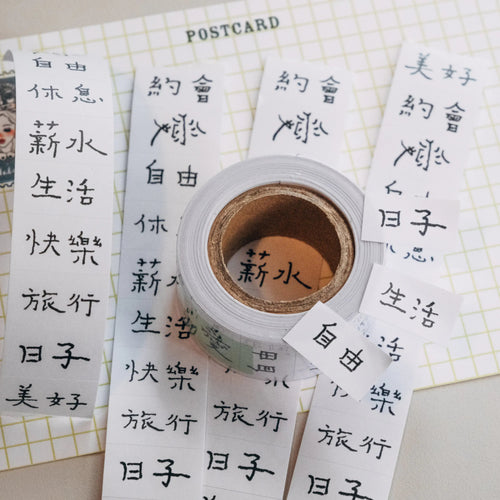 POSTCARD
自由
休息
薪水
生活
快樂
旅行
日子
美好
約會
自由
休
薪水
生活
快樂
旅行
日子
約會
旅行
日子
美好
約會
快樂
旅行
日子
薪水
日子
生活
自由